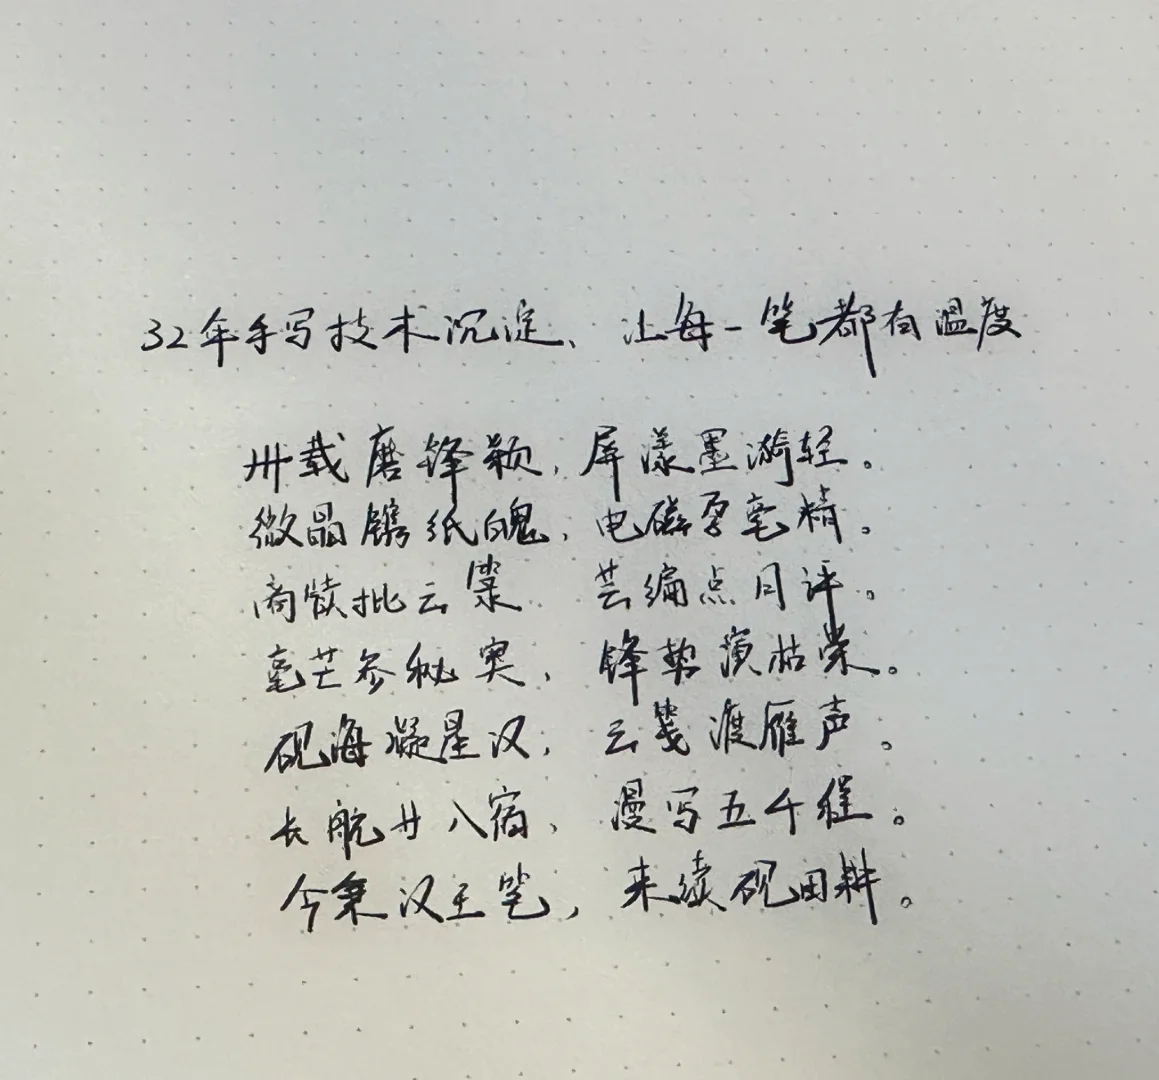 32年手写技术沉淀、让每一笔都有温度
卅载磨锋颖，屏漾墨漪轻。
微晶镌纸魄，电磁孕毫精。
商牍批云篆 芸编点月评。
毫芒参秘奥，锋势演枯荣。
砚海凝星汉，云笺渡雁声。
长航廿八宿，漫写五千程。
今秉汉王笔，来续砚田耕。